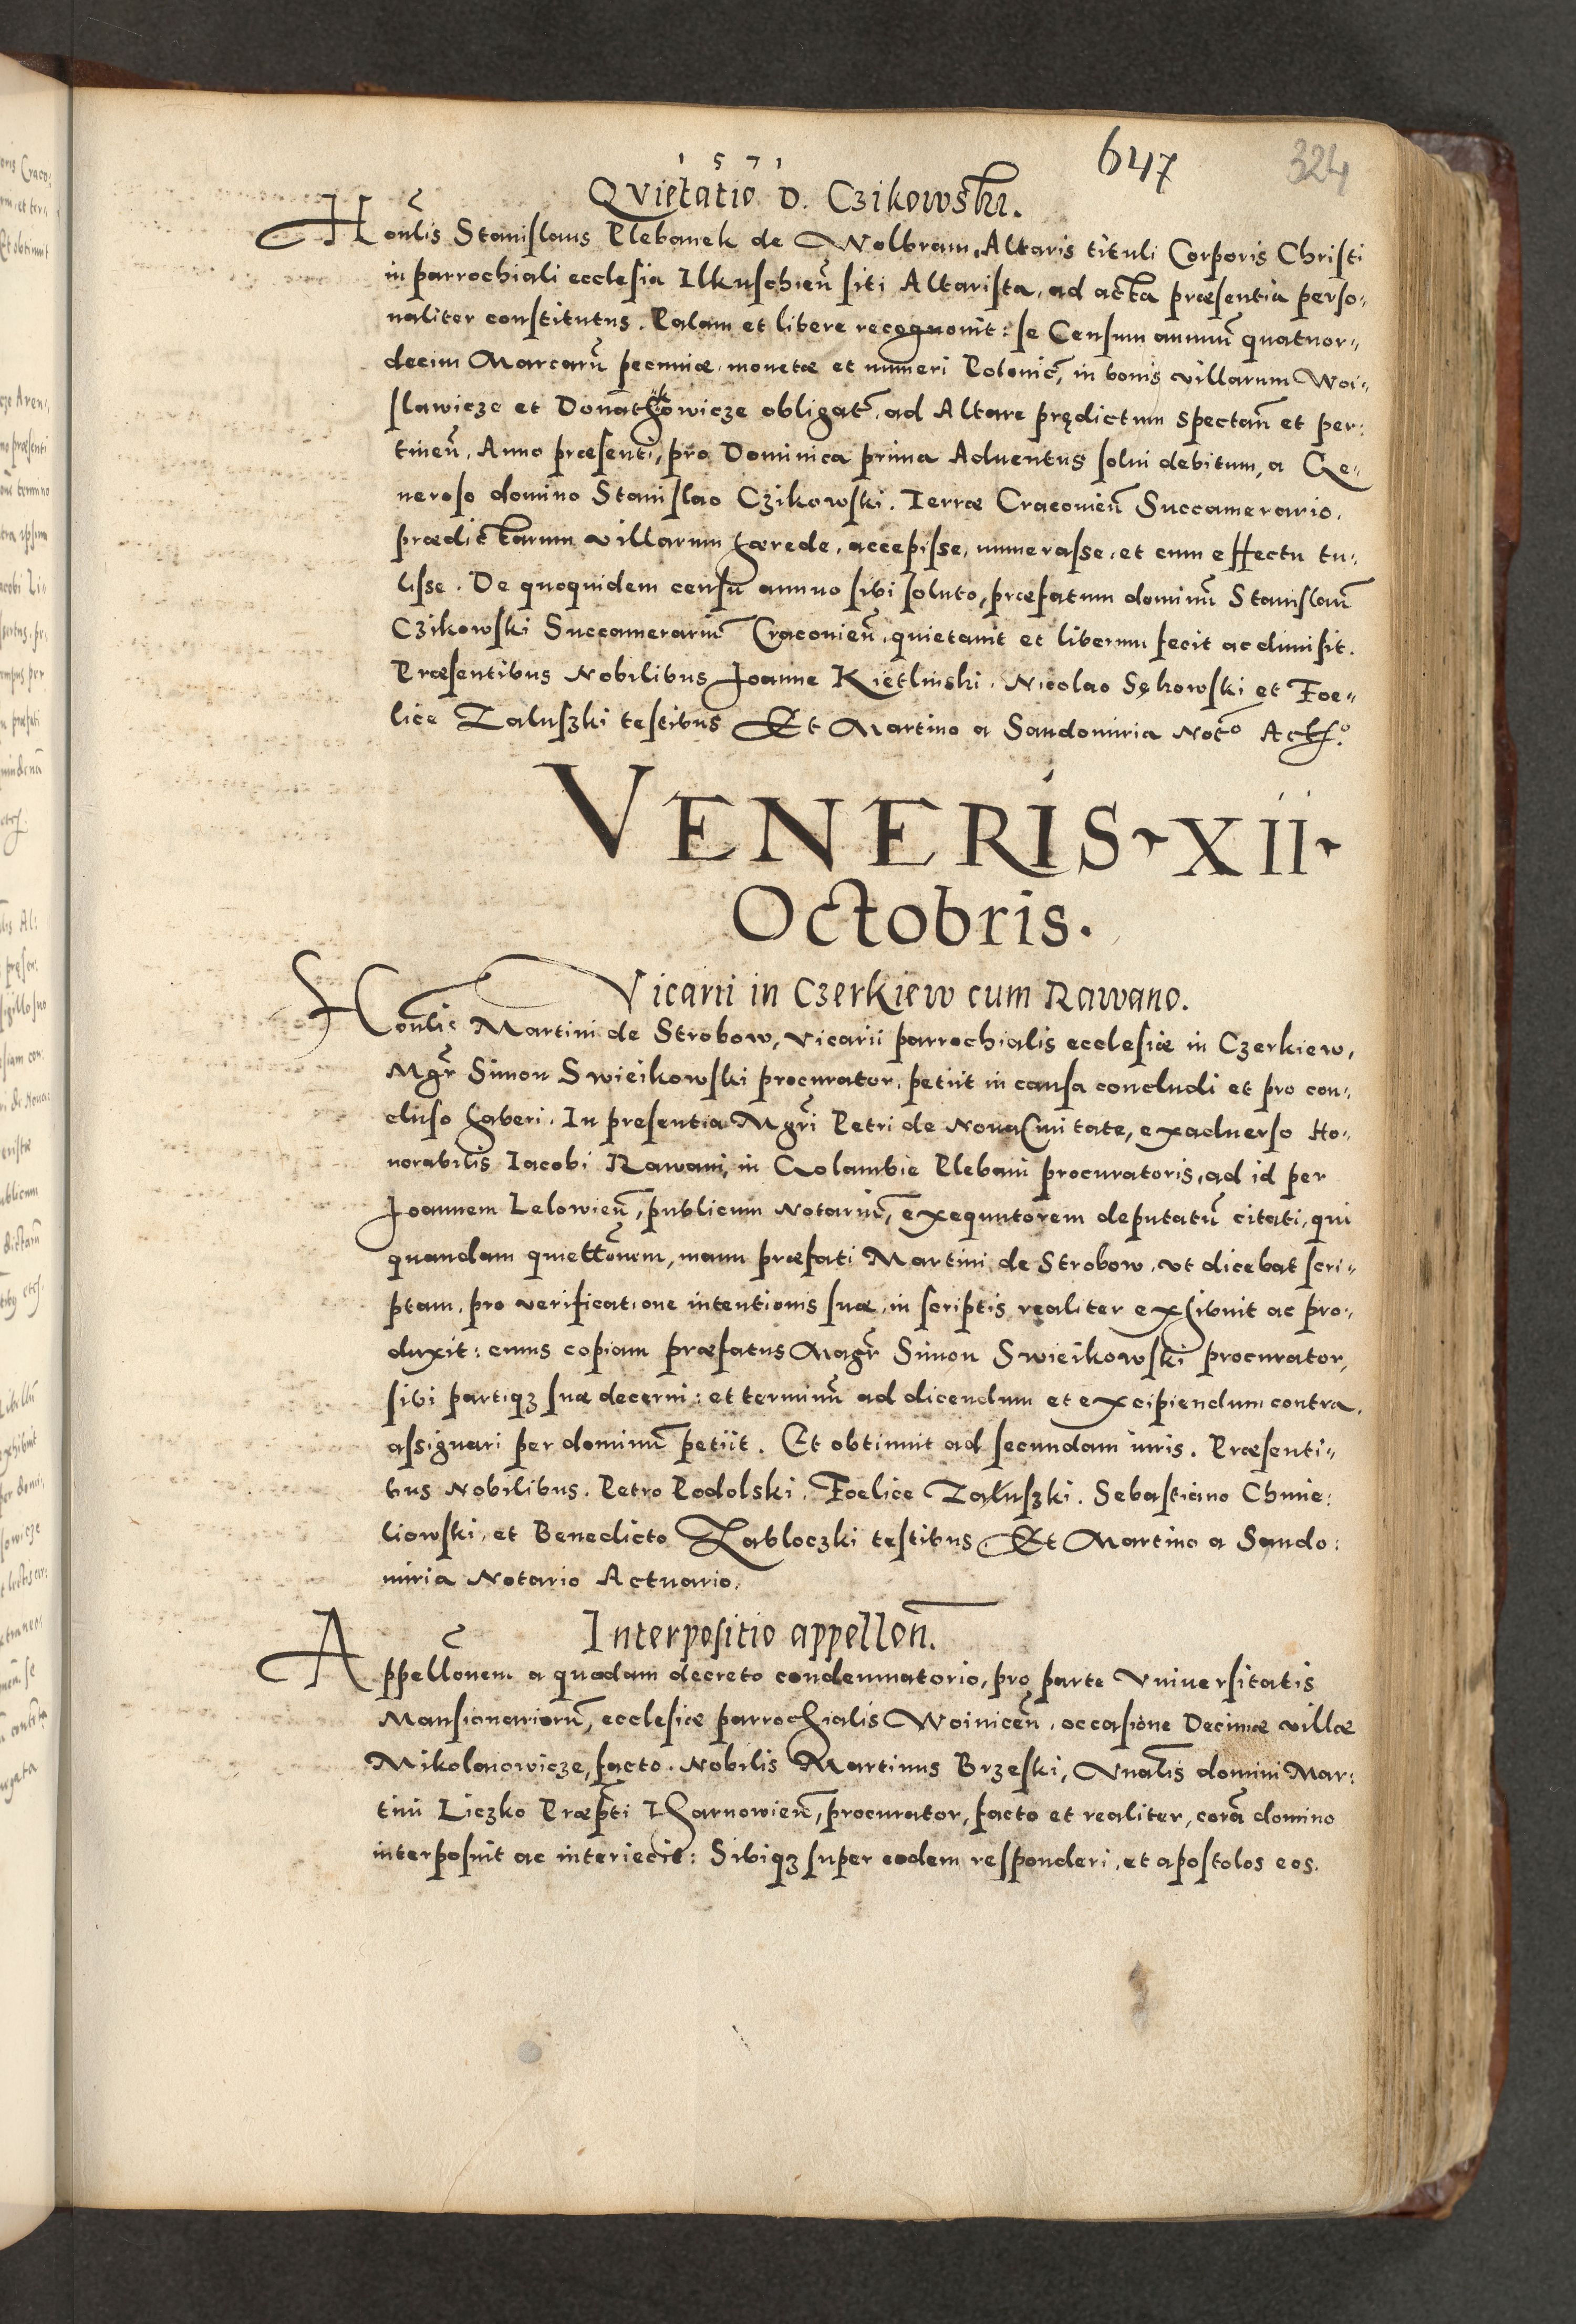 1571
647
324
Qvietatio D. Czikowski.
Honlis Stanislaus Plebanek de Wolbram, Altaris tituli Corporis Christi
in parrochiali ecclesia Ilkuschien siti Altarista, ad acta præsentia perso„
naliter constitutus. Palam et libere recognovit: se Censum annuū quatuor„
decim Marcarū pecuniæ, monetæ et numeri Polonic, in bonis villarum Woi„
slawicze et obligat, ad Altare prędictum spectan et per:
tinen, Anno præsenti, pro Dominica prima Aduentus solui debitum, a Ge„
neroso domino Stanislao Czikowski. Terræ Cracovien Succamerario,
prædictarum villarum hærede, accepisse, numerasse, et cum effectu tu„
lisse. De quoquidem censu annuo sibi soluto, præfatum dominū Stanislaū
Czikowski Succamerariū Cracovien, quietauit et liberum fecit ac dimisit.
Præsentibus Nobilibus Joanne Kietlinski, Nicolao Sękowski et Foe„
lice Zaluszki testibus Et Martino a Sandomiria Noto Acto.
VENERIS XII
Octobris.
Vicarii in Czerkiew cum Rawano.
Honlis Martini de Strobow, Vicarii parrochialis ecclesiæ in Czerkiew,
Mgr Simon Swieikowski procurator, petiit in causa concludi et pro con„
cluso haberi. In presentia Mgri Petri de Noua Ciuitate, ex aduerso Ho„
norabilis Iacobi Rawani, in Golambie Plebani procuratoris, ad id per
Joannem Lelowien, publicum Notariū, exequutorem deputatū citati, qui
quandam quiettonem, manu præfati Martini de Strobow, vt dicebat scri„
ptam, pro verificatione intentionis suæ, in scriptis realiter exhibuit ac pro„
duxit: cuius copiam præfatus Magr Simon Swieikowski procurator,
sibi partiqȝ suæ decerni: et terminū ad dicendum et excipiendum contra,
assignari per dominū petiit. Et obtinuit ad secundam iuris. Præsenti„
bus Nobilibus. Petro Podolski. Foelice Zaluszki. Sebastiano Chmie:
liowski, et Benedicto Zabloczki testibus Et Martino a Sando:
miria Notario Actuario.
Interpositio appellon.
Appellonem a quodam decreto condemnatorio, pro parte Vniuersitatis
Mansionariorū, ecclesiæ parrochialis Woinicen, occasione Decimæ villæ
Mikolaiowicze, facto. Nobilis Martinus Brzeski, domini Mar:
tini Liczko Præpti Tharnowien, procurator, facto et realiter, corā domino
interposuit ac interiecit: Sibiqȝ super eodem responderi, et apostolos eos.